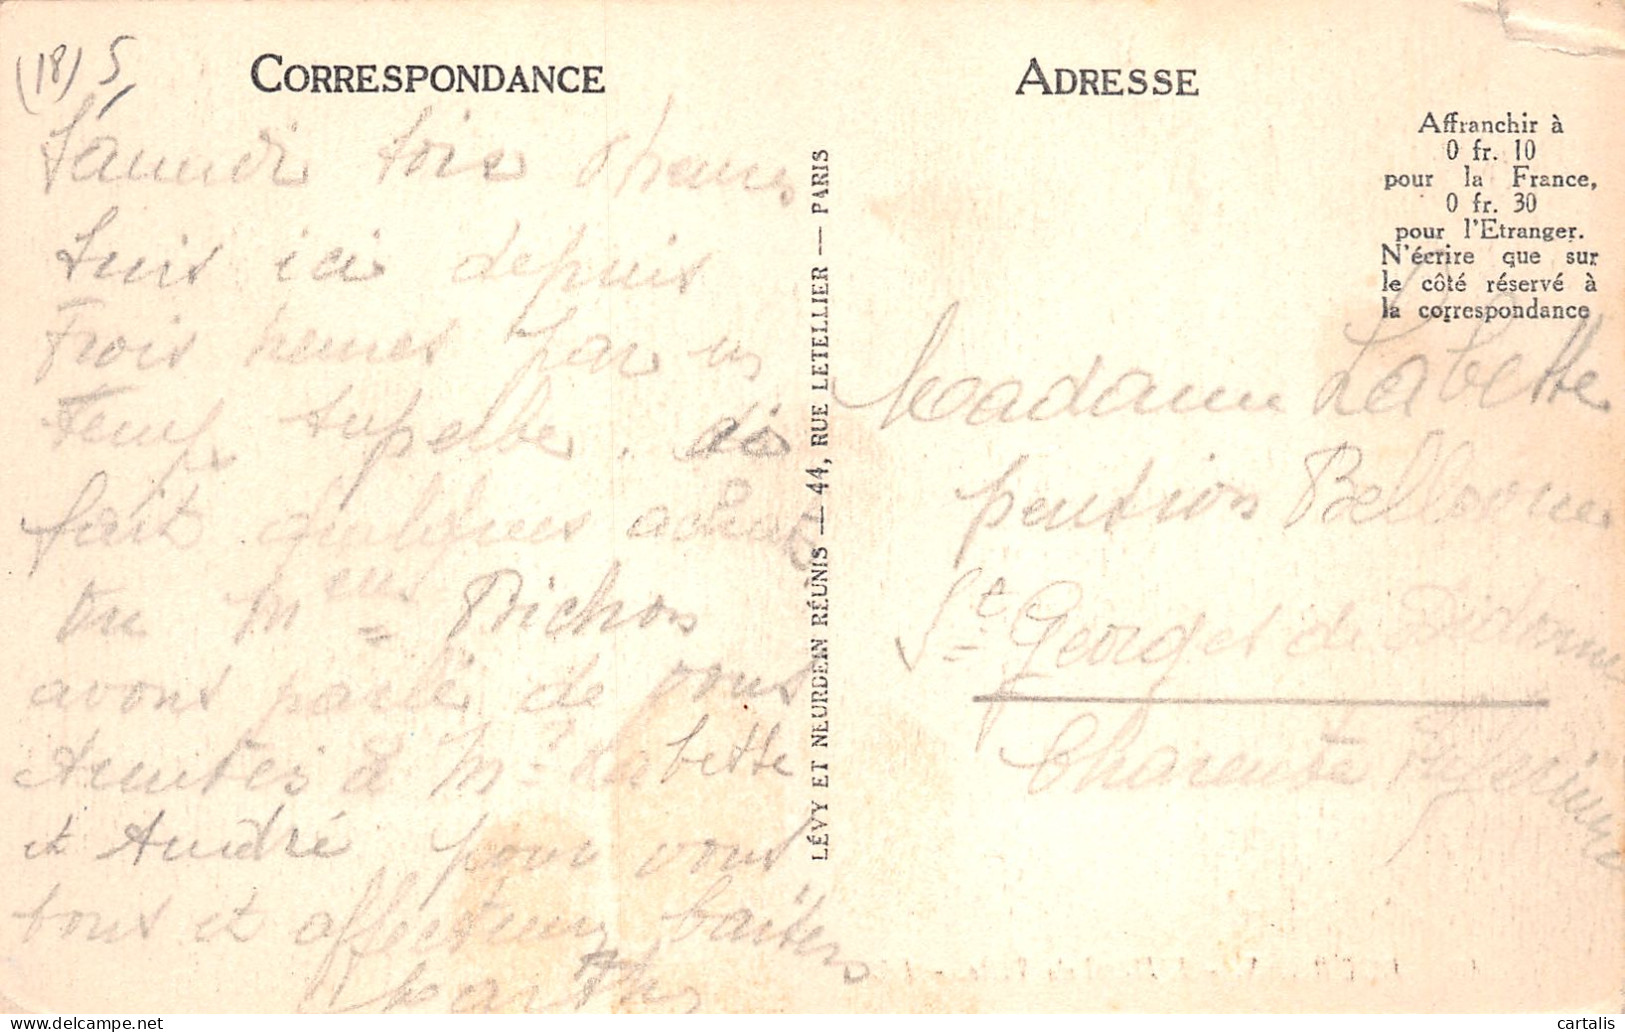 (18) 5
CORRESPONDANCE
Samedi soir 8 heures
Suis ici depuis
Trois heures par un
Temps superbe. ai
fait quelques achats
Vu M Pichon
avons parlé de vous
Amitiés à Mr Labette
et André pour vous
tous et affectueux baisers
Marthe
LÉVY ET NEURDEIN RÉUNIS — 44, RUE LETELLIER — PARIS
ADRESSE
Affranchir à
0 fr. 10
pour la France,
0 fr. 30
pour l'Etranger.
N'écrire que sur
le côté réservé à
la correspondance
Madame Labette
pension Bellevue
St Georges de Didonne
Charente Inférieure
cartalis
delcampe.net